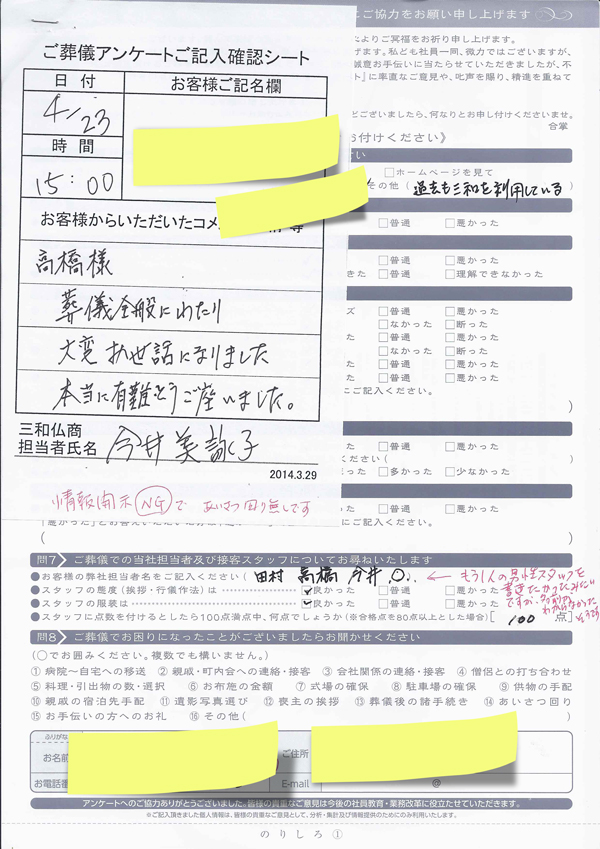 にご協力をお願い申し上げます
ご葬儀アンケートご記入確認シート
日付
お客様ご記名欄
4/23
時間
15:00
お客様からいただいたコメ
等
高橋様
葬儀全般にわたり
大変お世話になりました
本当に有難とうご座いました。
三和仏商
担当者氏名 今井美詠子
2014.3.29
情報開示NGで あいさつ回り無しです
たよりご冥福をお祈り申し上げます。
げます。私ども社員一同、微力ではございますが、
誠意お手伝いに当たらせていただきましたが、不
ト』に率直なご意見や、叱声を賜り、精進を重ねて
どございましたら、何なりとお申し付けくださいませ。
合掌
お付けください》
さい
□ホームページを見て
その他( 過去も三和を利用している
□普通 □悪かった
□普通 □悪かった
きた □普通 □理解できなかった
ズ □普通 □悪かった
□なかった □断った
た □普通 □悪かった
□なかった □断った
た □普通 □悪かった
た □普通 □悪かった
にご記入ください。
)
た □普通 □悪かった
ください )
った □多かった □少なかった
た □普通 □悪かった
にご記入ください。
)
問7 ご葬儀での当社担当者及び接客スタッフについてお尋ねいたします
●お客様の弊社担当者名をご記入ください( 田村 高橋 今井
←もう1人の男性スタッフを
●スタッフの態度(挨拶・行儀作法)は ☑良かった □普通 □悪かった
●スタッフの服装は ☑良かった □普通 □悪かった
●スタッフに点数を付けるとしたら100点満点中、何点でしょうか(※合格点を80点以上とした場合)[ 100 点]
問8 ご葬儀でお困りになったことがございましたらお聞かせください
(○でお囲みください。複数でも構いません。)
①病院〜自宅への移送 ②親戚・町内会への連絡・接客 ③会社関係の連絡・接客 ④僧侶との打ち合わせ
⑤料理・引出物の数・選択 ⑥お布施の金額 ⑦式場の確保 ⑧駐車場の確保 ⑨供物の手配
⑩親戚の宿泊先手配 ⑪遺影写真選び ⑫夜主の挨拶 ⑬葬儀後の諸手続き ⑭あいさつ回り
⑮お手伝いの方へのお礼 ⑯その他( )
ふりがな
お名前
ご住所
お電話番
E-mail @
アンケートへのご協力ありがとうございました。皆様の貴重なご意見は今後の社員教育・業務改革に役立たせていただきます。
※ご記入頂きました個人情報は、皆様の貴重なご意見として、分析・集計及び情報提供のためにのみ利用いたします。
のりしろ①